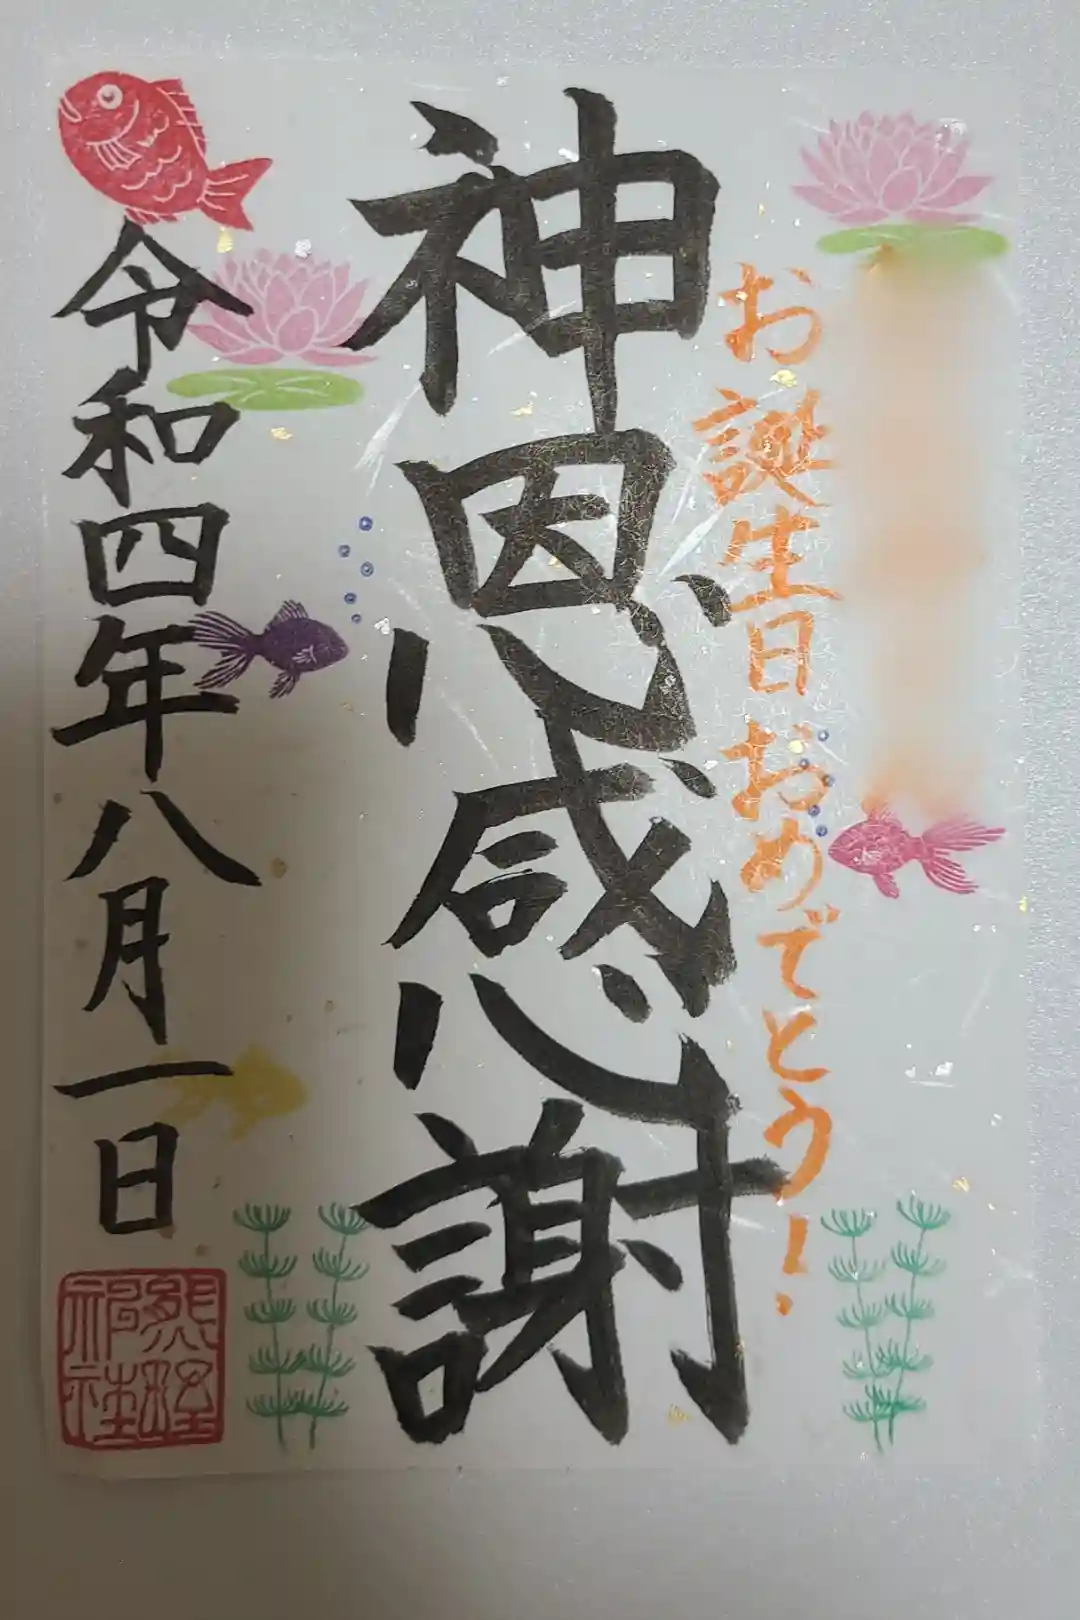 お誕生日おめでとう!
神恩感謝
令和四年八月一日